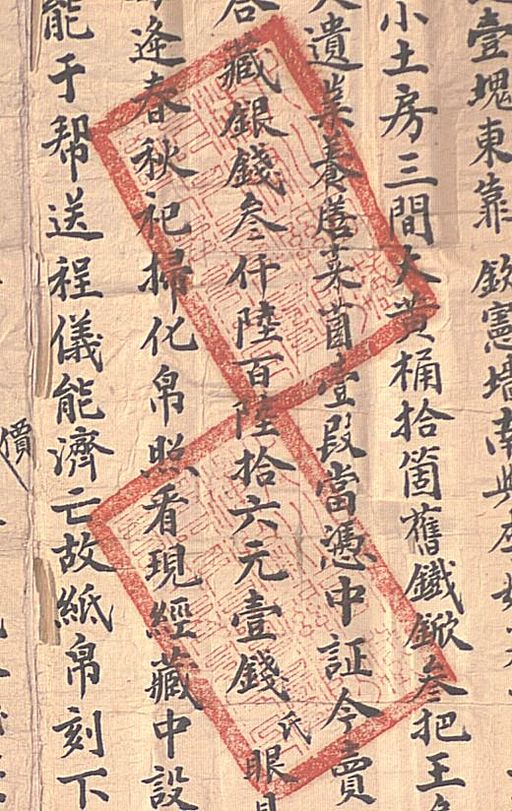 壹塊東靠欽憲墻南與
小土房三間大黃桶拾箇舊鐵鍁叁把王
遺業養膳菜園壹段當憑中証今賣
藏銀錢叁仟陸百陸拾六元壹錢氏眼
逢春秋祀掃化帛照看現經藏中設
能于帮送程儀能濟亡故紙帛刻下
價